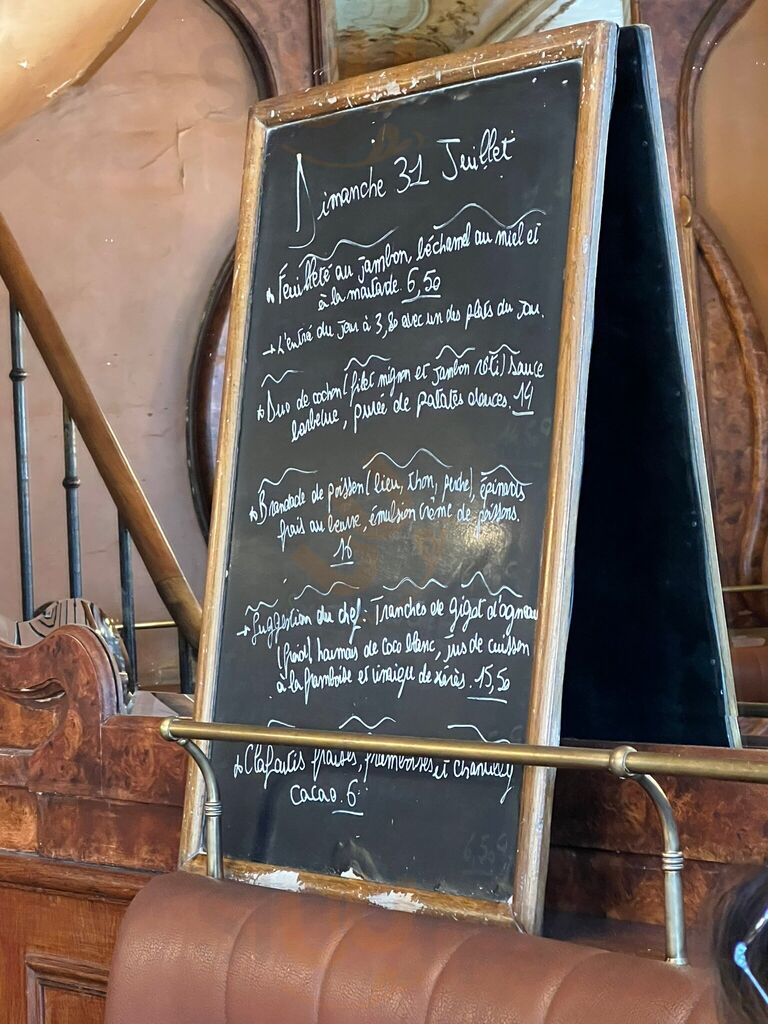 Dimanche 31 Juillet
Feuilleté au jambon, béchamel au miel et
à la moutarde. 6,50
→ L'entré du jour à 3,80 avec un des plats du jour.
Duo de cochon (filet mignon et jambon rôti) sauce
barbecue, purée de patates douces. 14
Brandade de poisson (lieu, thon, perche), épinards
frais au beurre, émulsion crème de poissons.
16
→ Suggestion du chef. Tranches de gigot d'agneau
(froid) houmous de coco blanc, jus de cuisson
à la framboise et vinaigre de xérès. 15,50
Clafoutis fraises, framboises et chantilly
cacao. 6